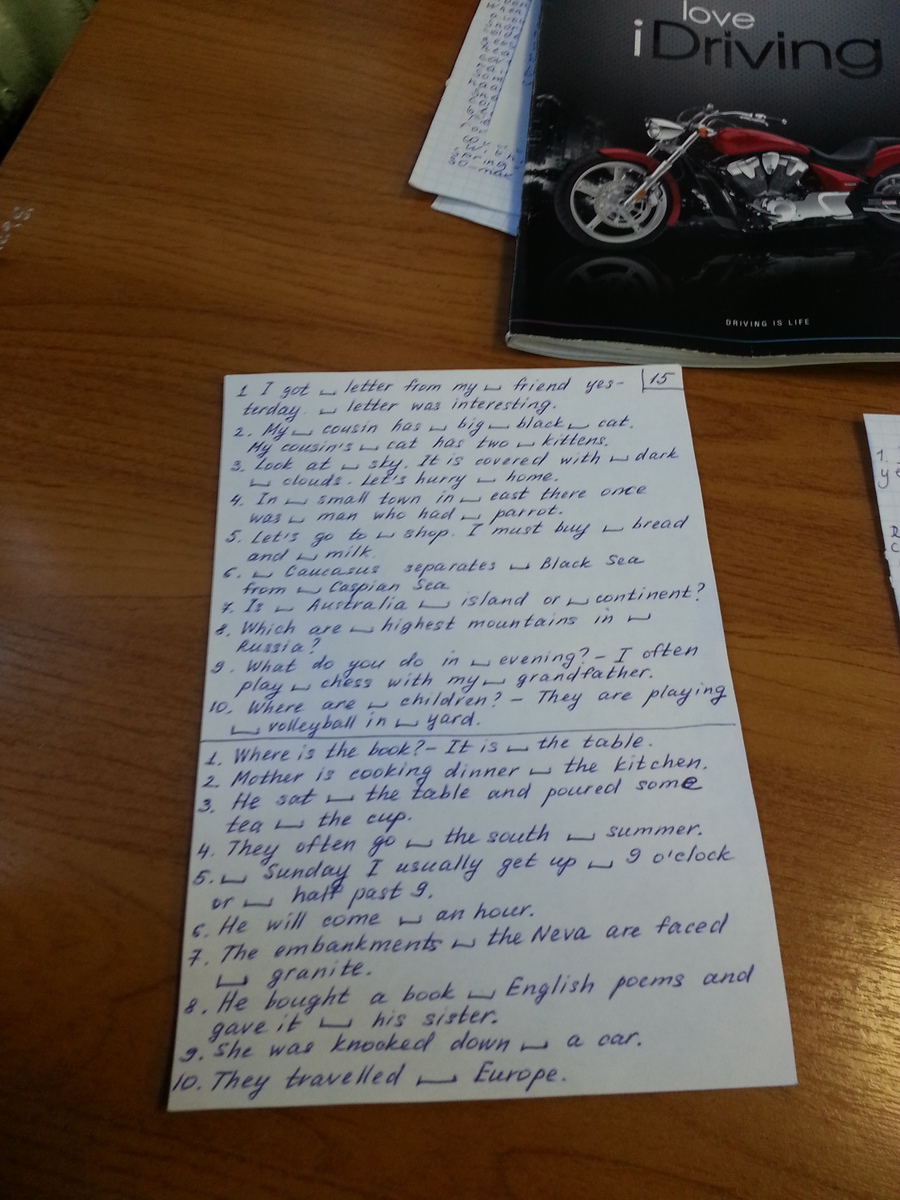 love
iDriving
DRIVING IS LIFE
15
1 I got ⌴ letter from my ⌴ friend yes-
terday. ⌴ letter was interesting.
2. My ⌴ cousin has ⌴ big ⌴ black ⌴ cat.
My cousin's ⌴ cat has two ⌴ kittens.
3. Look at ⌴ sky. It is covered with ⌴ dark
⌴ clouds. Let's hurry ⌴ home.
4. In ⌴ small town in ⌴ east there once
was ⌴ man who had ⌴ parrot.
5. Let's go to ⌴ shop. I must buy ⌴ bread
and ⌴ milk.
6. ⌴ Caucasus separates ⌴ Black Sea
from ⌴ Caspian Sea
7. Is ⌴ Australia ⌴ island or ⌴ continent?
8. Which are ⌴ highest mountains in ⌴
Russia?
9. What do you do in ⌴ evening? - I often
play ⌴ chess with my ⌴ grandfather.
10. Where are ⌴ children? - They are playing
⌴ volleyball in ⌴ yard.
1. Where is the book? - It is ⌴ the table.
2. Mother is cooking dinner ⌴ the kitchen.
3. He sat ⌴ the table and poured some
tea ⌴ the cup.
4. They often go ⌴ the south ⌴ summer.
5. ⌴ Sunday I usually get up ⌴ 9 o'clock
or ⌴ half past 9.
6. He will come ⌴ an hour.
7. The embankments ⌴ the Neva are faced
⌴ granite.
8. He bought a book ⌴ English poems and
gave it ⌴ his sister.
9. She was knocked down ⌴ a car.
10. They travelled ⌴ Europe.
1.